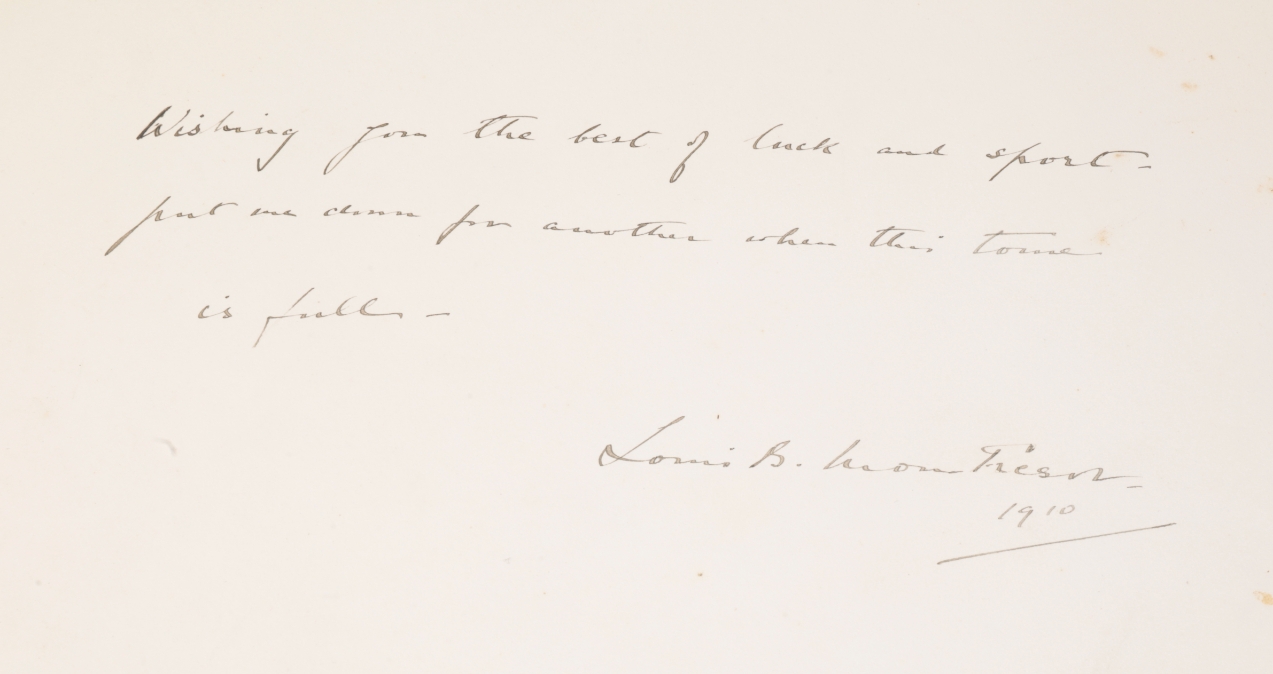 Wishing you the best of luck and sport -
put me down for another when this tome
is full -
Louis B. Mon Trésor -
1910